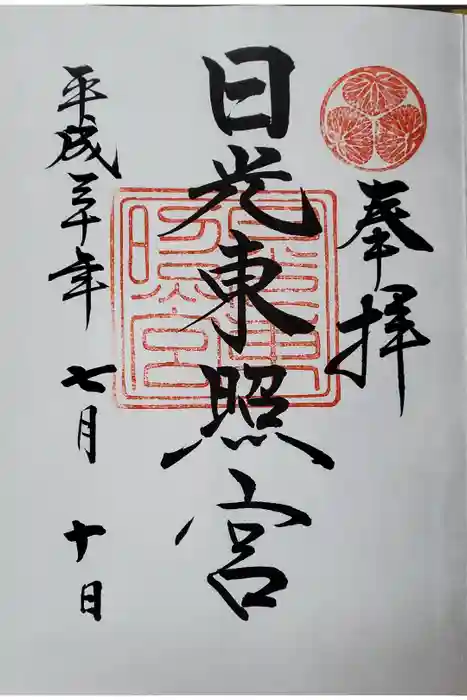 奉拝
日光東照宮
平成三十年
七月
十日